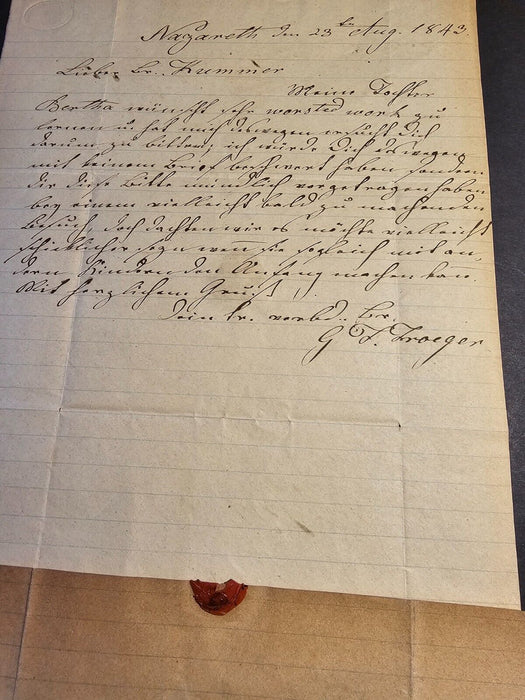 Nazareth den 23ten Aug. 1843.
Lieber Br. Kummer
Meine Tochter
Bertha wünscht sehr worsted work zu
lernen u. hat mich deswegen ersucht Dich
darum zu bitten; ich würde Dich deswegen
mit keinem Brief beschwert haben sondern
Dir diese Bitte mündlich vorgetragen haben
bey einem vielleicht bald zu machenden
Besuch, doch dachten wir es möchte vielleicht
schicklicher seyn wen sie sogleich mit an,
dern Kindern den Anfang machen kan.
Mit herzlichem Gruß,
Dein tr. verbd. Br.
G F. Troeger